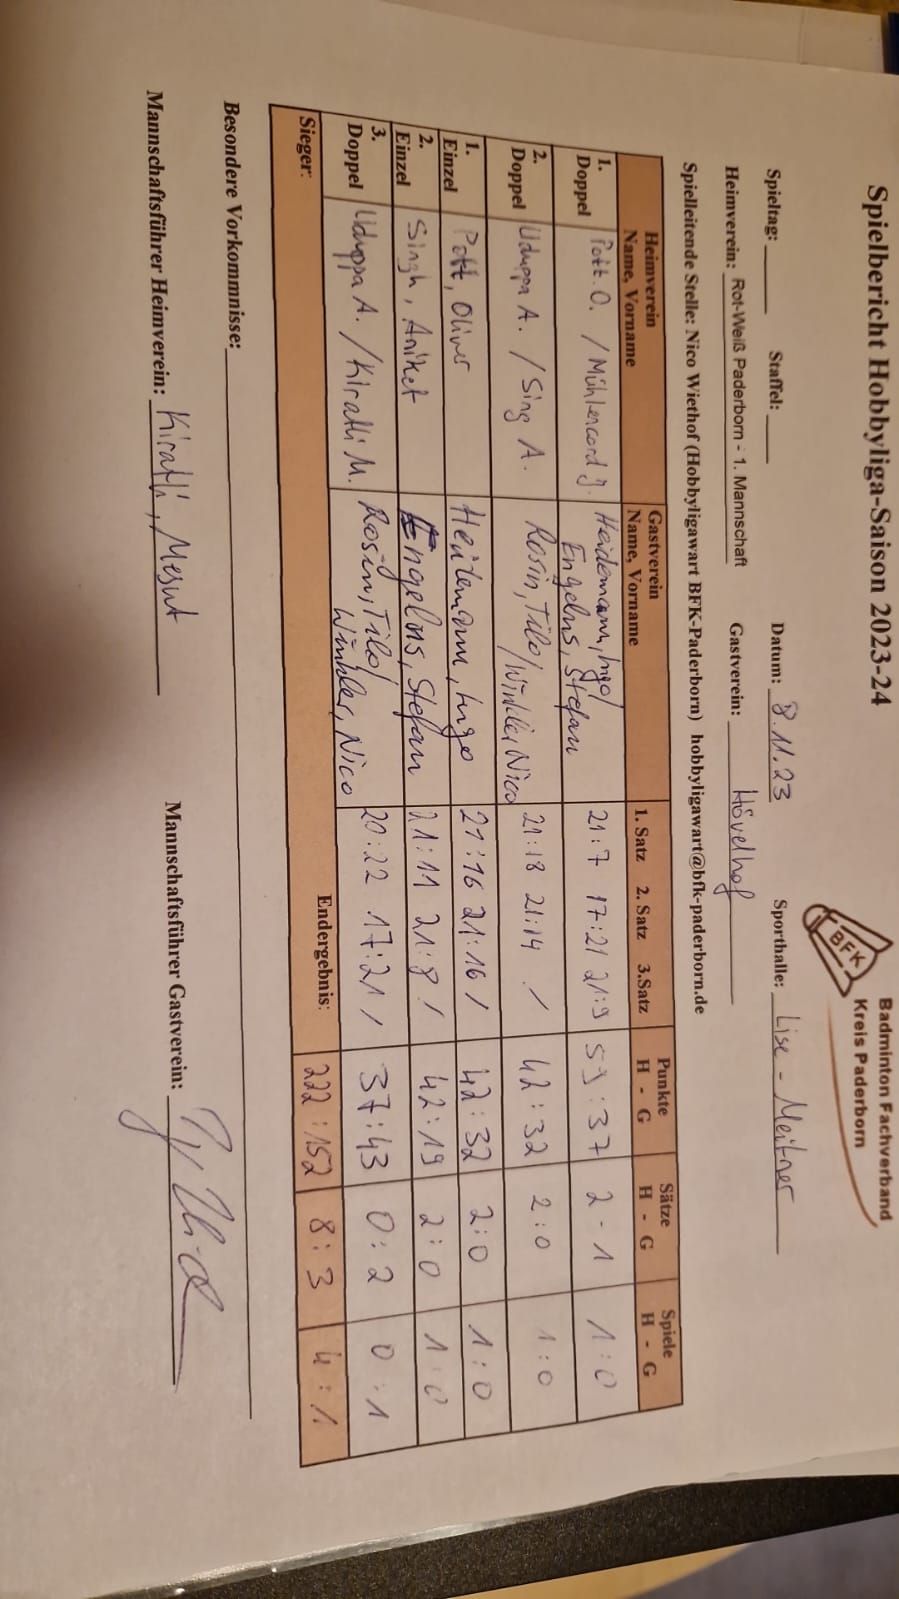 Spielbericht Hobbyliga-Saison 2023-24
BFK
Badminton Fachverband
Kreis Paderborn
Spieltag: Staffel: Datum: 8.11.23 Sporthalle: Lise - Meitner
Heimverein: Rot-Weiß Paderborn - 1. Mannschaft Gastverein: Hövelhof
Spielleitende Stelle: Nico Wiethof (Hobbyligawart BFK-Paderborn) hobbyligawart@bfk-paderborn.de
Heimverein Name, Vorname Gastverein Name, Vorname 1. Satz 2. Satz 3.Satz Punkte H - G Sätze H - G Spiele H - G
1. Doppel Pott. O. / Mühlencord J. Heidemann, Ingo / Engelns, Stefan 21:7 17:21 21:9 59:37 2 - 1 1:0
2. Doppel Uduppa A. / Sing A. Rosin, Tilo / Winkler, Nico 21:18 21:14 / 42:32 2:0 1:0
1. Einzel Pott, Oliver Heidemann, Ingo 21:16 21:16 / 42:32 2:0 1:0
2. Einzel Singh, Aniket Engelns, Stefan 21:11 21:8 / 42:19 2:0 1:0
3. Doppel Uduppa A. / Kiratli M. Rosin, Tilo / Winkler, Nico 20:22 17:21 / 37:43 0:2 0:1
Sieger: Endergebnis: 222:152 8:3 4:1
Besondere Vorkommnisse:
Mannschaftsführer Heimverein: Kiratli, Mesut Mannschaftsführer Gastverein: